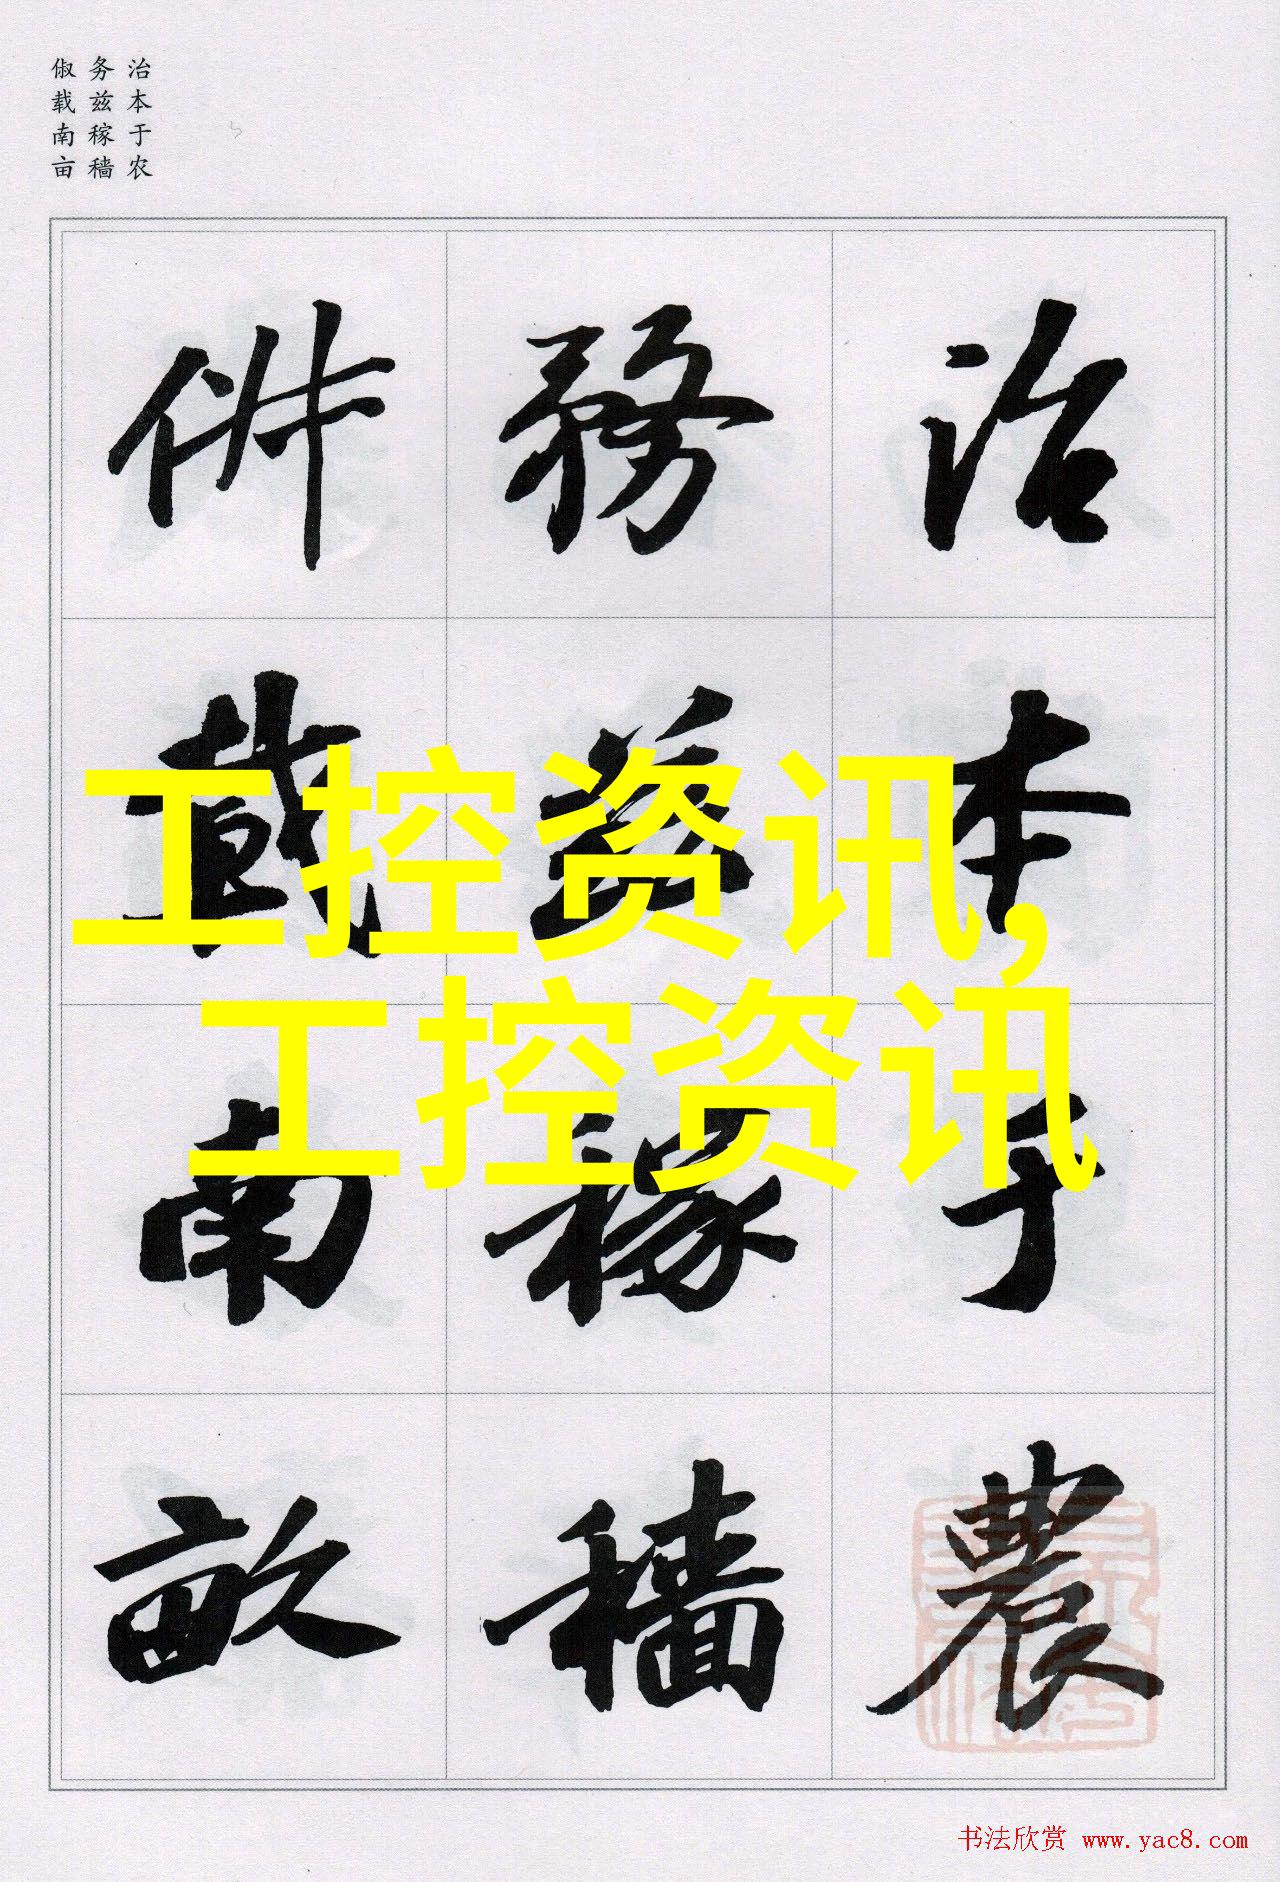 治本于农
务兹稼穑
俶载南亩
治本于農
務茲稼穡
俶載南畝
工控资讯,
工控资讯
书法欣赏 www.yac8.com